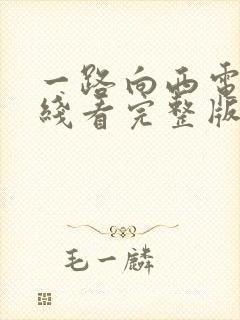 一路向西电
线看完整版
毛一麟